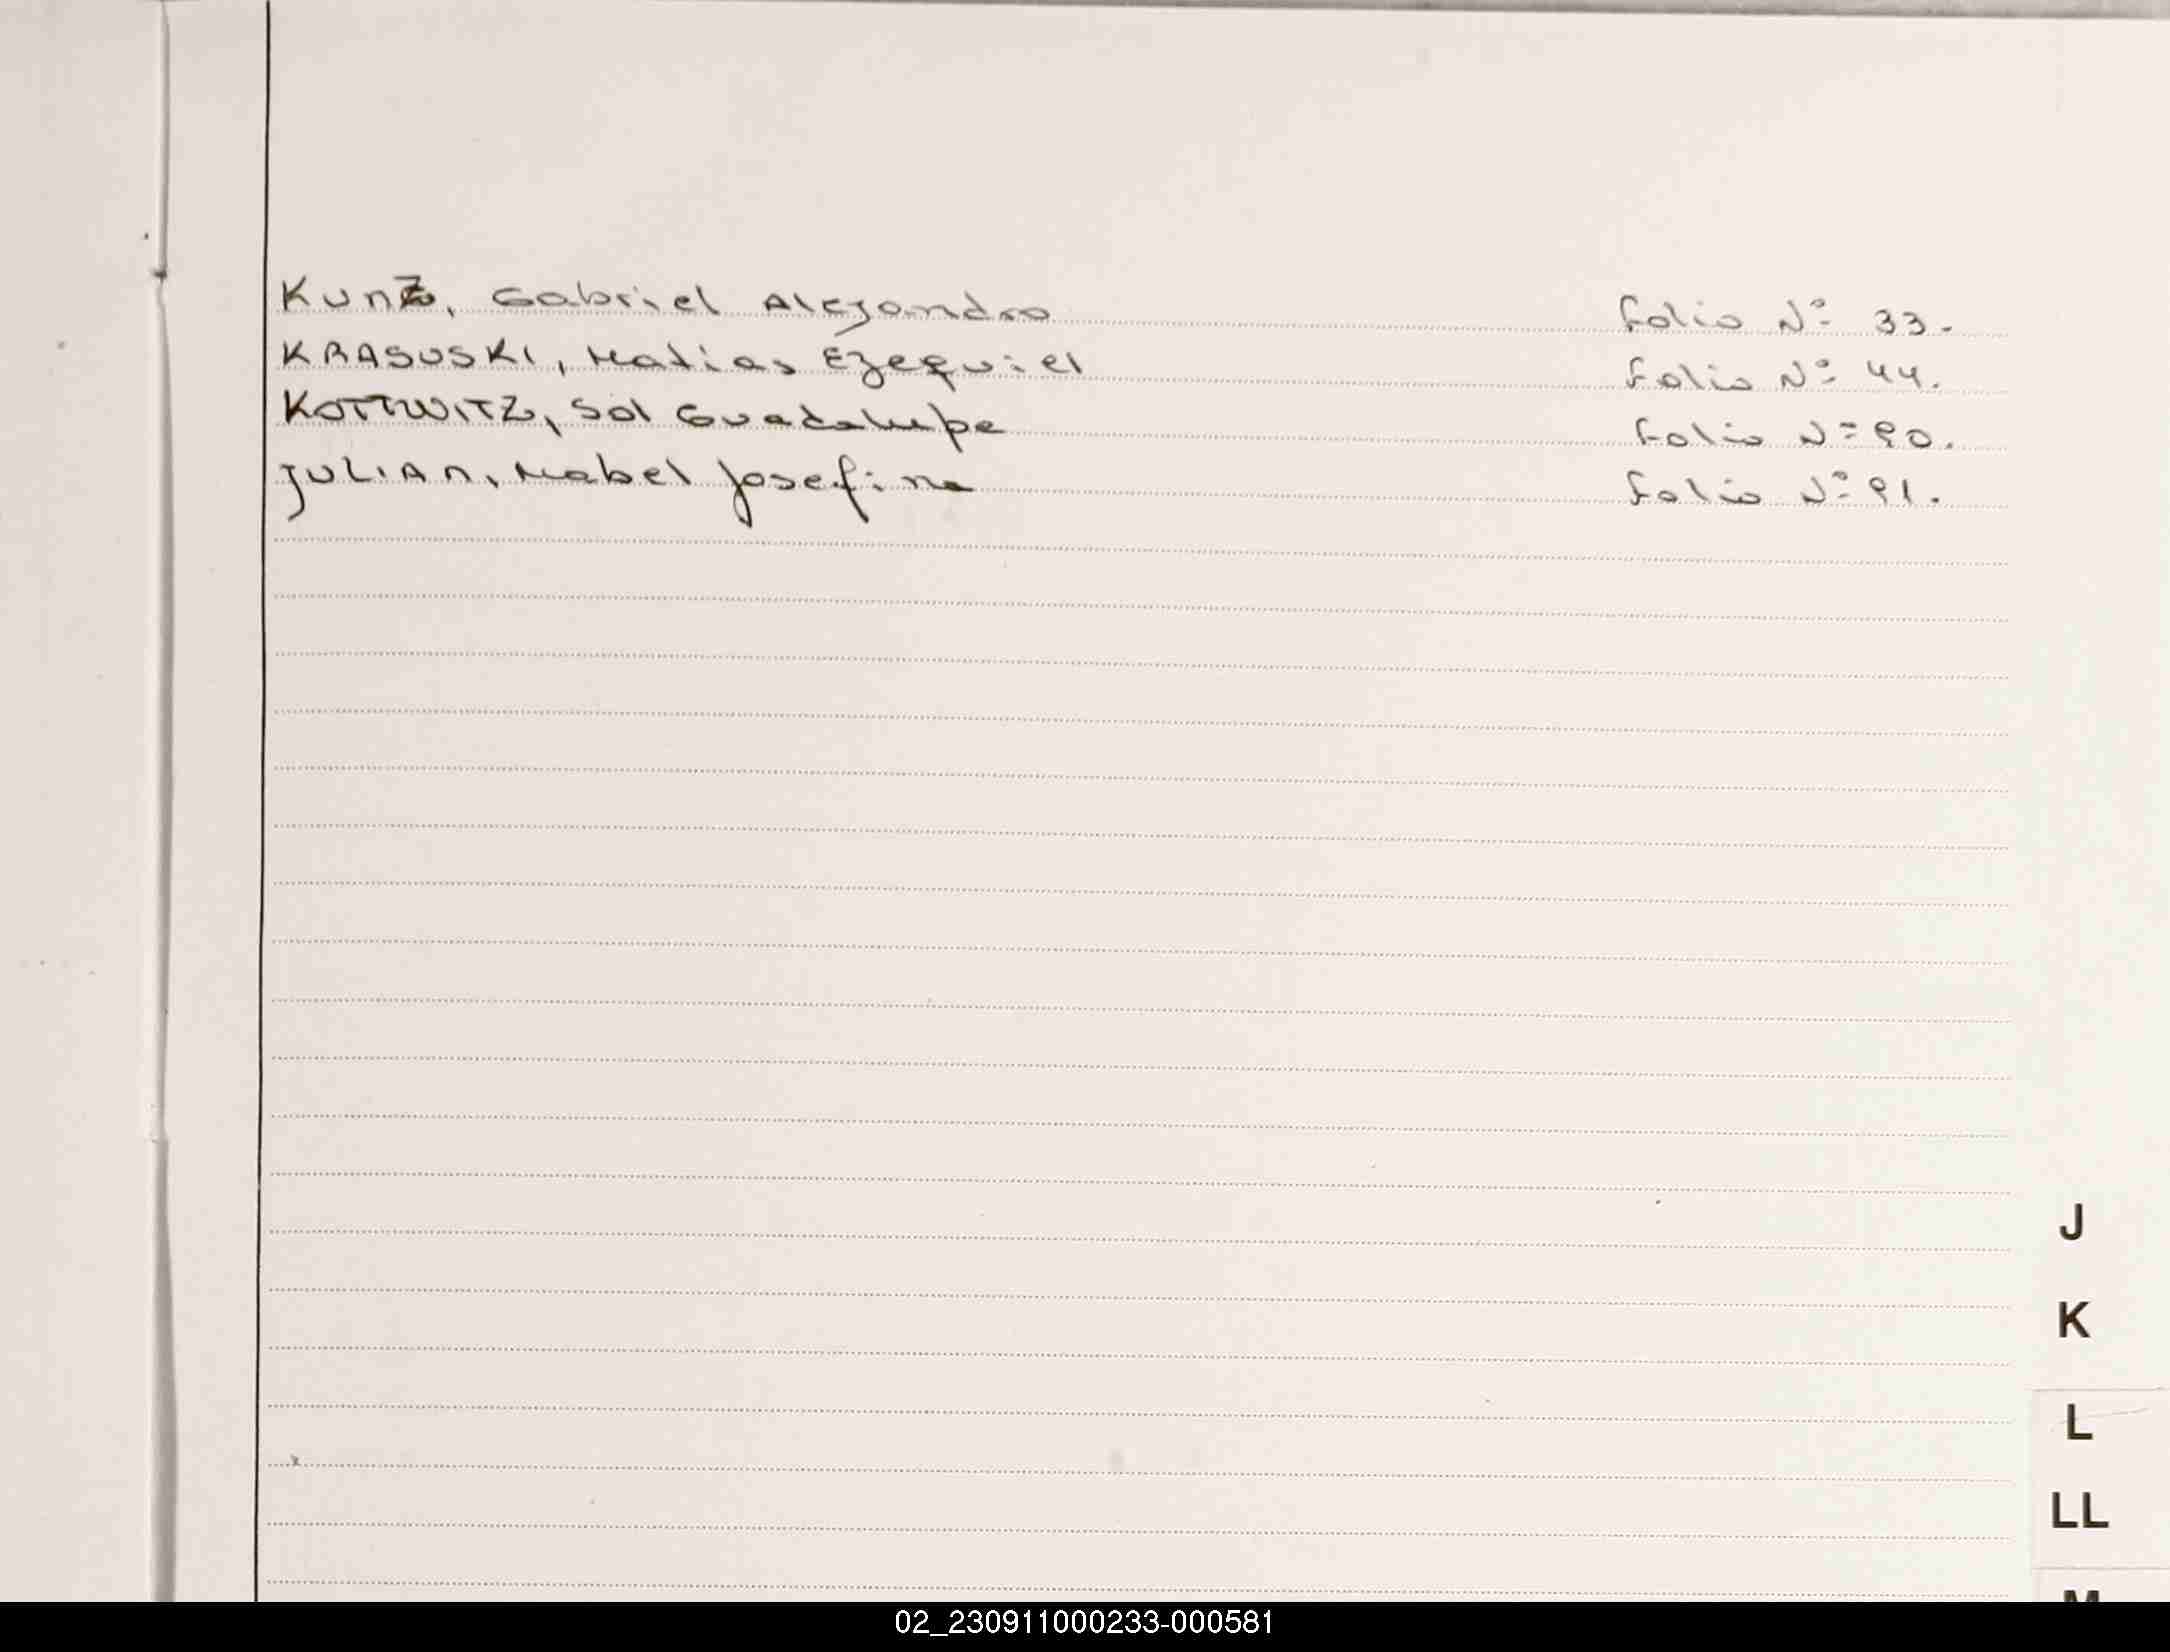 KUNZ, Gabriel Alejandro Folio Nº 33.
KRASUSKI, Matias Ezequiel Folio Nº 44.
KOTTWITZ, Sol Guadalupe Folio Nº 90.
JULIAN, Mabel Josefina Folio Nº 91.
J
K
L
LL
M
02_230911000233-000581